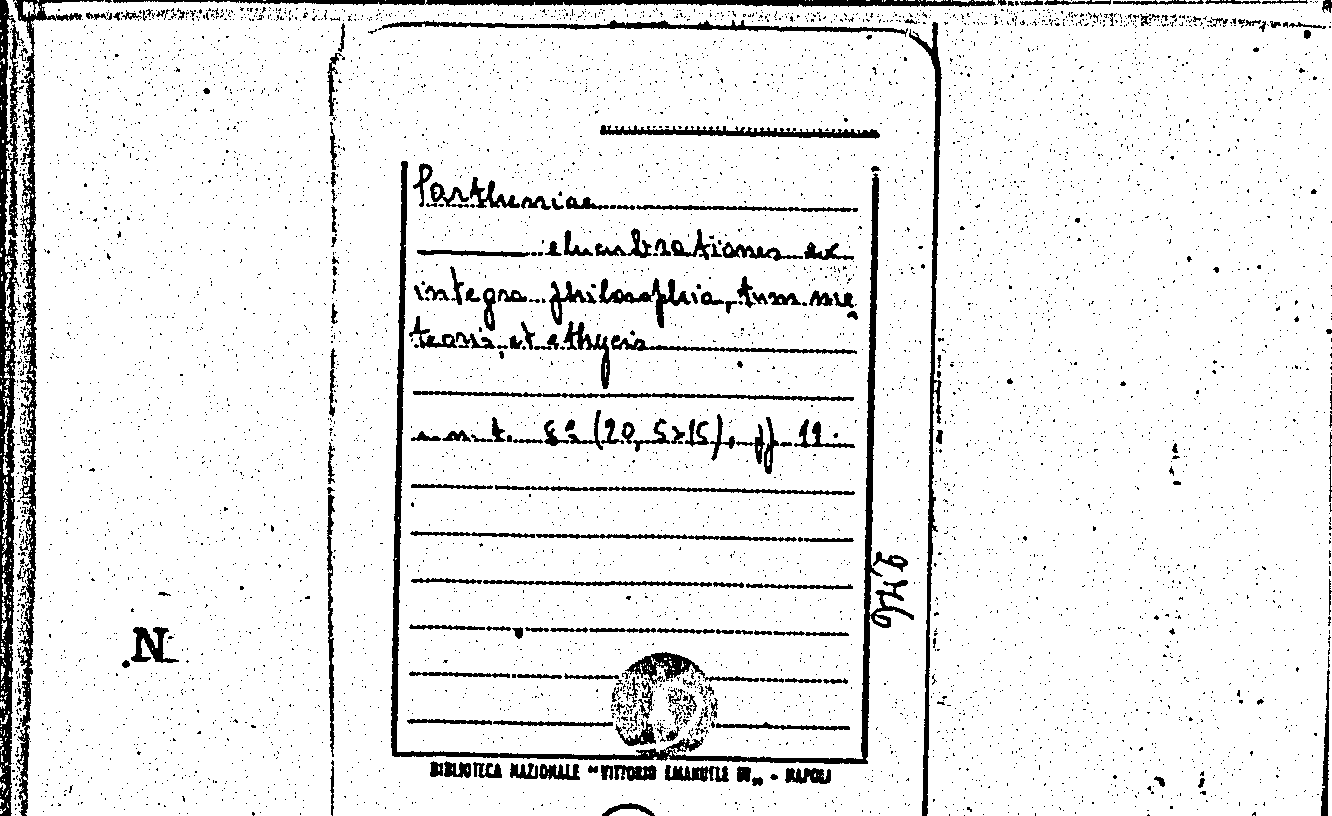 Partheniae
elucubrationes ex
integra philosophia, tum me
teoris, et ethycis
s. n. t. 8° (20,5x15), ff 11.
N
BIBLIOTECA NAZIONALE "VITTORIO EMANUELE III" - NAPOLI